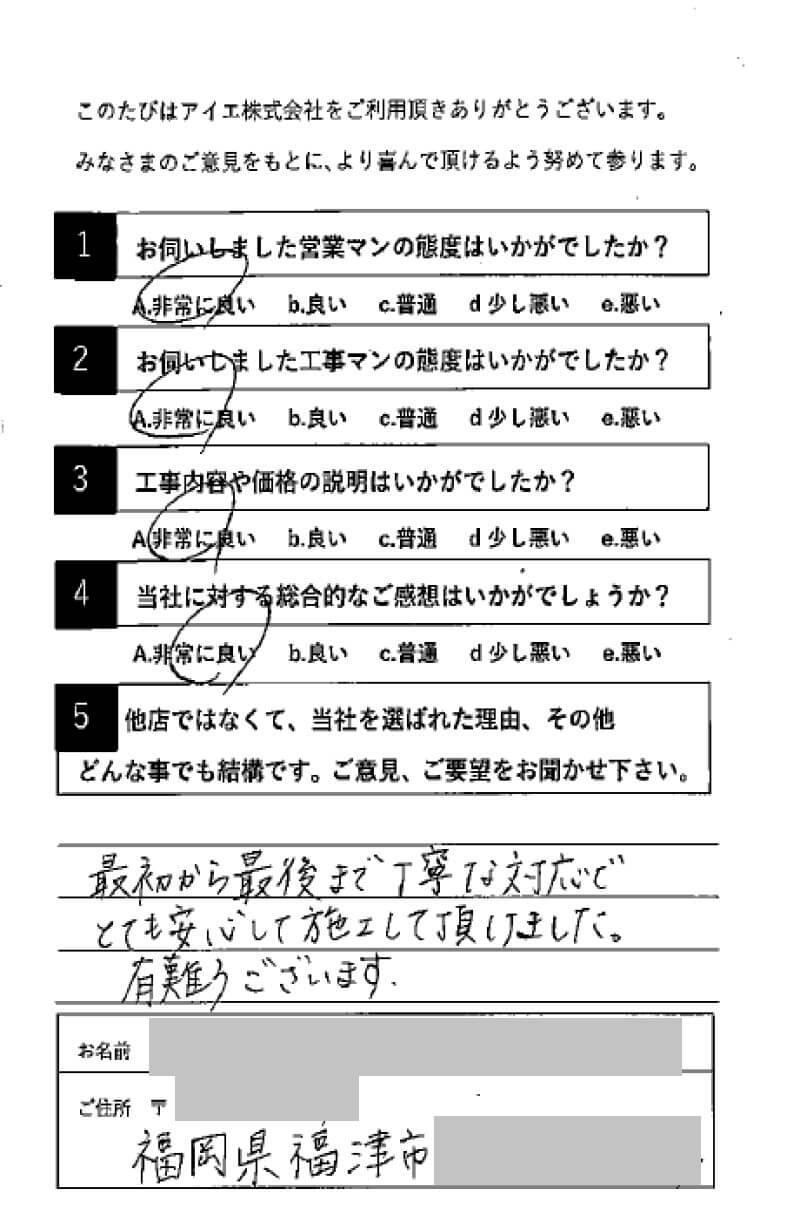 このたびはアイエ株式会社をご利用頂きありがとうございます。
みなさまのご意見をもとに、より喜んで頂けるよう努めて参ります。
1 お伺いしました営業マンの態度はいかがでしたか？
A.非常に良い b.良い c.普通 d 少し悪い e.悪い
2 お伺いしました工事マンの態度はいかがでしたか？
A.非常に良い b.良い c.普通 d 少し悪い e.悪い
3 工事内容や価格の説明はいかがでしたか？
A.非常に良い b.良い c.普通 d 少し悪い e.悪い
4 当社に対する総合的なご感想はいかがでしょうか？
A.非常に良い b.良い c.普通 d 少し悪い e.悪い
5 他店ではなくて、当社を選ばれた理由、その他
どんな事でも結構です。ご意見、ご要望をお聞かせ下さい。
最初から最後まで丁寧な対応で
とても安心して施工して頂けました。
有難うございます.
お名前
ご住所 〒
福岡県福津市